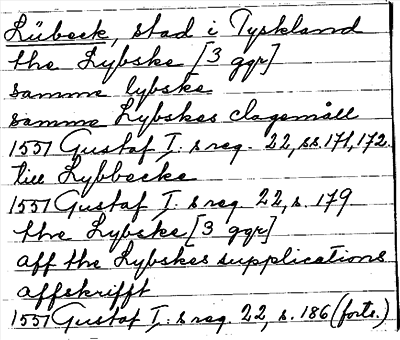 Lübeck, stad i Tyskland
the Lybske [3 ggr]
samme lybske
samme Lybskes clagemåll
1551 Gustaf I:s reg. 22, ss. 171, 172.
till Lybbecke
1551 Gustaf I:s reg. 22, s. 179
the Lybske [3 ggr]
aff the Lybskes supplications
affskrifft
1551 Gustaf I:s reg. 22, s. 186 (forts.)